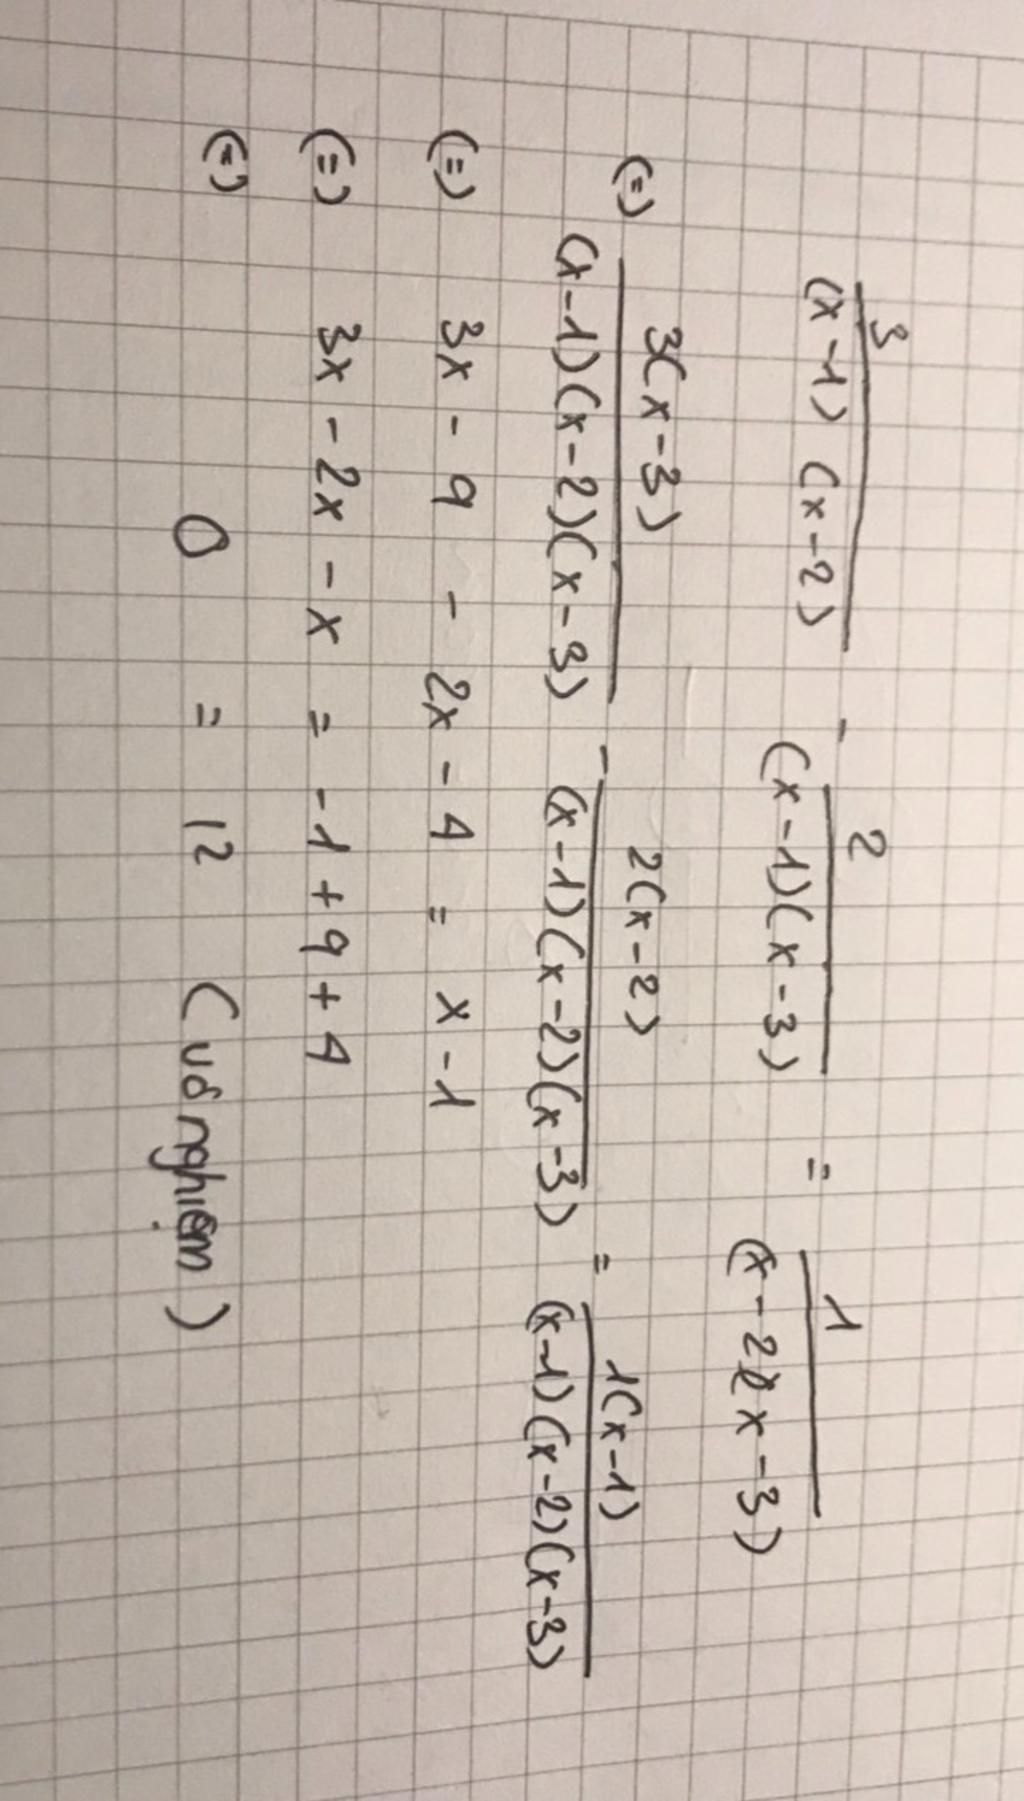 3/((x-1)(x-2)) - 2/((x-1)(x-3)) = 1/((x-2)(x-3))
(=) 3(x-3)/((x-1)(x-2)(x-3)) - 2(x-2)/((x-1)(x-2)(x-3)) = 1(x-1)/((x-1)(x-2)(x-3))
(=) 3x - 9 - 2x - 4 = x - 1
(=) 3x - 2x - x = -1 + 9 + 4
(=) 0 = 12 (vô nghiệm)